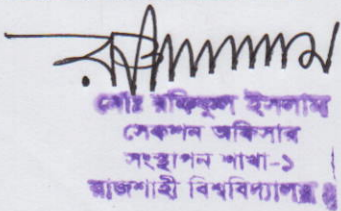 মোঃ রফিকুল ইসলাম
সেকশন অফিসার
সংস্থাপন শাখা-১
রাজশাহী বিশ্ববিদ্যালয়